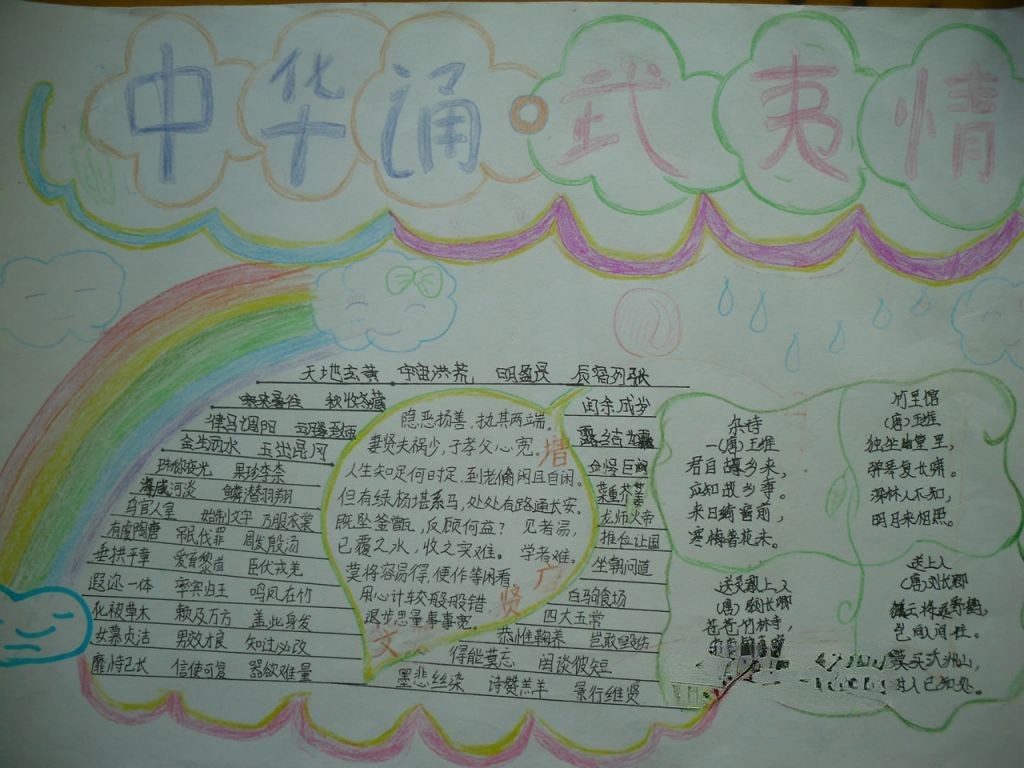 中华诵·武夷情
天地玄黄 宇宙洪荒 日月盈昃 辰宿列张
寒来暑往 秋收冬藏
闰余成岁
律吕调阳 云腾致雨
露结为霜
金生丽水 玉出昆冈
剑号巨阙
珠称夜光 果珍李柰
菜重芥姜
海咸河淡 鳞潜羽翔
龙师火帝
鸟官人皇 始制文字 乃服衣裳
推位让国
有虞陶唐 吊民伐罪 周发殷汤
坐朝问道
垂拱平章 爱育黎首 臣伏戎羌
遐迩一体 率宾归王 鸣凤在竹
白驹食场
化被草木 赖及万方 盖此身发
四大五常
女慕贞洁 男效才良 知过必改
恭惟鞠养 岂敢毁伤
得能莫忘 罔谈彼短
靡恃己长 信使可复 器欲难量
墨悲丝染 诗赞羔羊 景行维贤
增
广
贤
文
隐恶扬善,执其两端。
妻贤夫祸少,子孝父心宽。
人生知足何时足,到老偷闲且自闲。
但有绿杨堪系马,处处有路通长安。
既坠釜甑,反顾何益? 见者易,
已覆之水,收之实难。 学者难。
莫将容易得,便作等闲看。
用心计较般般错,
退步思量事事宽。
杂诗
(唐)王维
君自故乡来,
应知故乡事。
来日绮窗前,
寒梅著花未。
竹里馆
(唐)王维
独坐幽篁里,
弹琴复长啸。
深林人不知,
明月来相照。
送灵澈上人
(唐)刘长卿
苍苍竹林寺,
送上人
(唐)刘长卿
孤云将野鹤,
岂向人间住。
莫买沃洲山,
时人已知处。